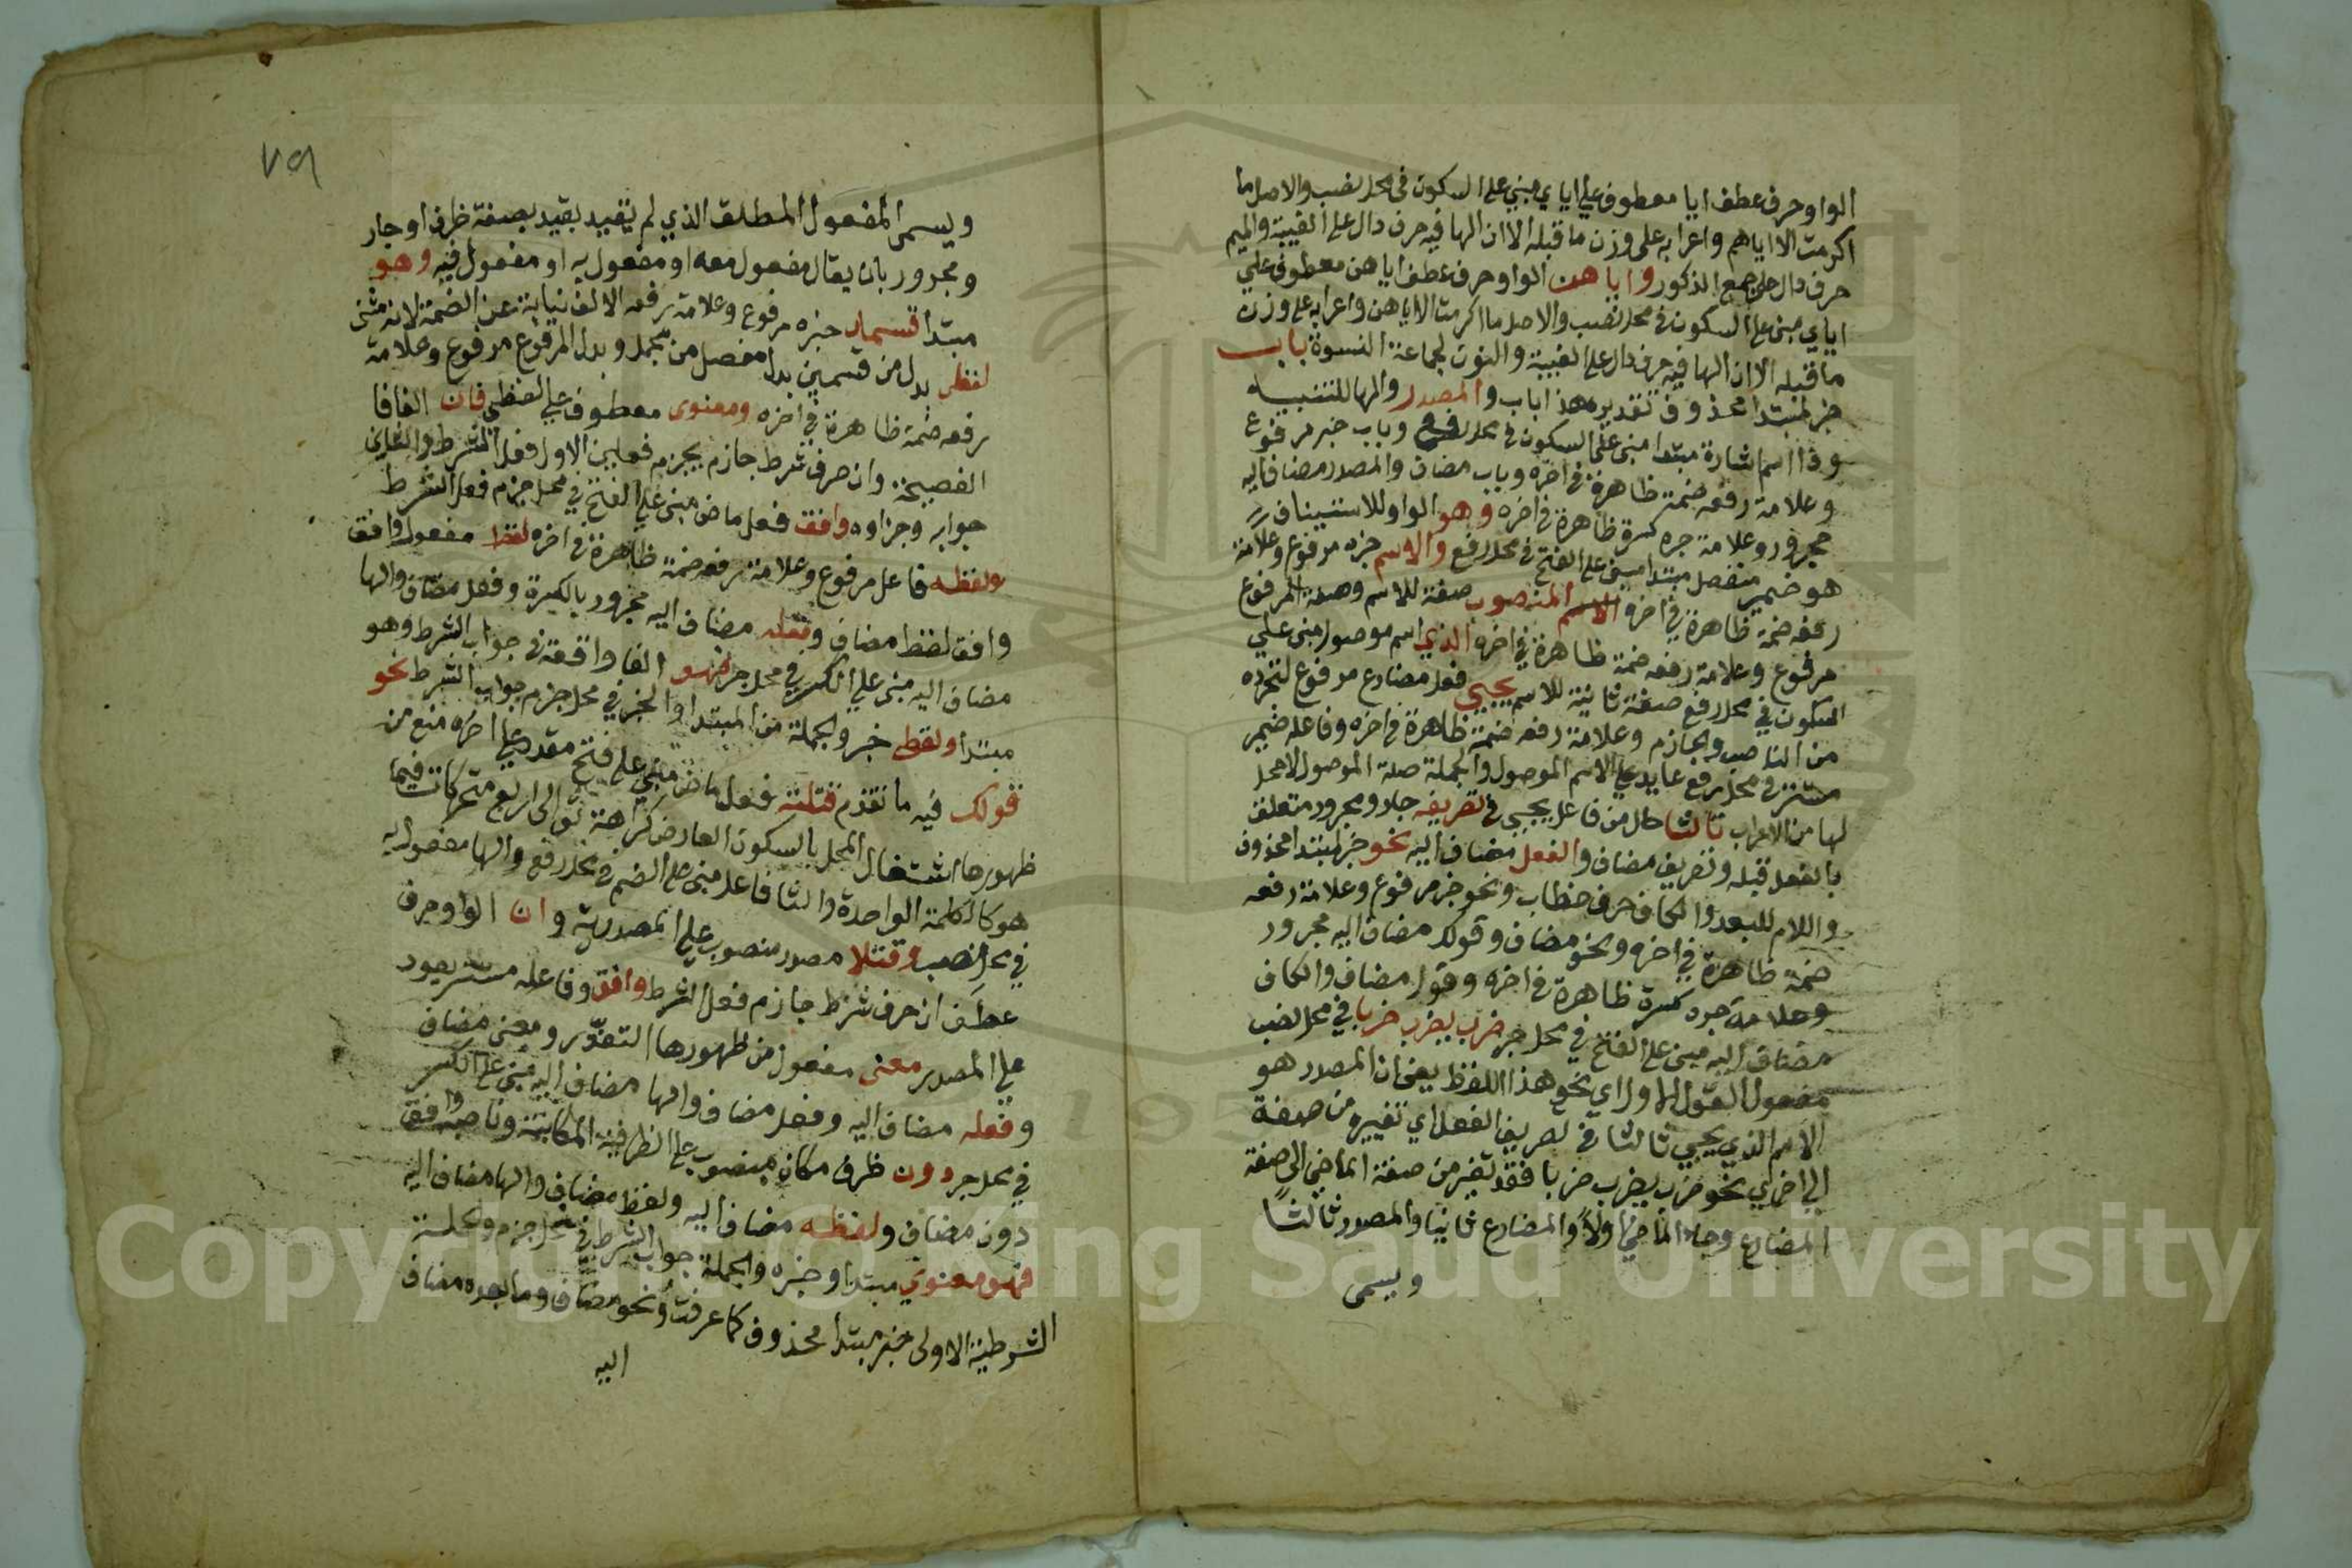 الواو حرف عطف ايا معطوف علي اياي مبني علي السكون في محل نصب والاصل ما
اكرمت الا اياهم واعرابه على وزن ما قبله الا ان الها فيه حرف دال على الغيبة والميم
حرف دال على جمع الذكور واياهن الواو حرف عطف اياهن معطوف علي
اياي مبني على السكون في محل نصب والاصل ما اكرمت الا اياهن واعرابه على وزن
ما قبله الا ان الها فيه حرف دال على الغيبة والنون لجماعة النسوة باب
خبر لمبتدا محذوف تقديره هذا باب والمصدر والها للتنبيه
وذا اسم اشارة مبتدا مبني على السكون في محل رفع وباب خبر مرفوع
وعلامة رفعه ضمة ظاهرة في اخره وباب مضاف والمصدر مضاف اليه
مجرور وعلامة جره كسرة ظاهرة في اخره وهو الواو للاستيناف
هو ضمير منفصل مبتدا مبني على الفتح في محل رفع والاسم خبره مرفوع وعلامة
رفعه ضمة ظاهرة في اخره الاسم المنصوب صفة للاسم وصفة المرفوع
مرفوع وعلامة رفعه ضمة ظاهرة في اخره الذي اسم موصول مبني علي
السكون في محل رفع صفة ثانية للاسم يجيي فعل مضارع مرفوع لتجرده
من الناصب والجازم وعلامة رفعه ضمة ظاهرة في اخره وفاعله ضمير
مستتر في محل رفع عايد علي الاسم الموصول والجملة صلة الموصول لا محل
لها من الاعراب ثالثا حال من فاعل يجيي في تصريف جار ومجرور متعلق
بالفعل قبله وتصريف مضاف والفعل مضاف اليه نحو خبر لمبتدا محذوف
واللام للبعد والكاف حرف خطاب ونحو خبر مرفوع وعلامة رفعه
ضمة ظاهرة في اخره ونحو مضاف وقولك مضاف اليه مجرور
وعلامة جره كسرة ظاهرة في اخره وقول مضاف والكاف
مضاف اليه مبني على الفتح في محل جر ضرب يضرب ضربا في محل نصب
مفعول القول الاول اي نحو هذا اللفظ يعني ان المصدر هو
الاسم الذي يجيي ثالثا في تصريف الفعل اي تغييره من صفة
الي اخري نحو ضرب يضرب ضربا فقد تغير من صفة الماضي الى صفة
المضارع وجا الماضي اولا والمضارع ثانيا والمصدر ثالثا
ويسمى
٧٩
ويسمى المفعول المطلق الذي لم يتقيد بقيد بصفة ظرف او جار
ومجرور بان يقال مفعول معه او مفعول به او مفعول فيه وهو
مبتدا قسمان خبره مرفوع وعلامة رفعه الالف نيابة عن الضمة لانه مثنى
لفظي بدل من قسمين بدل مفصل من مجمل وبدل المرفوع مرفوع وعلامة
رفعه ضمة ظاهرة في اخره ومعنوى معطوف علي لفظي فان الفا فا
الفصيحة وان حرف شرط جازم يجزم فعلين الاول فعل الشرط والثاني
جوابه وجزاوه وافق فعل ماض مبني علي الفتح في محل جزم فعل الشرط
ولفظه فاعل مرفوع وعلامة رفعه ضمة ظاهرة في اخره لفظ مفعول وافق
وافق لفظ مضاف وفعله مضاف اليه مجرور بالكسرة وفعل مضاف والها
مضاف اليه مبني علي الكسر في محل جر فهو الفا واقعة في جواب الشرط وهو
مبتدا ولفظي خبر والجملة من المبتدا والخبر في محل جزم جواب الشرط نحو
قولك فيه ما تقدم قتلته فعل ماض مبني على فتح مقدر علي اخره منع من
ظهورها اشتغال المحل بالسكون العارض كراهة توالى اربع متحركات فيما
هو كالكلمة الواحدة والتا فاعل مبني على الضم في محل رفع والها مفعول به
في محل نصب وقتلا مصدر منصوب علي المصدرية وان الواو حرف
عطف ان حرف شرط جازم فعل الشرط وافق وفاعله مستتر يعود
علي المصدر معنى مفعول من ظهورها التعذر ومعنى مضاف
وفعله مضاف اليه وفعل مضاف والها مضاف اليه مبني على الكسر
في محل جر دون ظرف مكان منصوب على الظرفية المكانية وناصبه وافق
دون مضاف ولفظه مضاف اليه ولفظ مضاف والها مضاف اليه
فهو معنوي مبتدا وخبره والجملة جواب الشرط في محل جزم والجملة
الشرطية الاولى خبر مبتدا محذوف كما عرفت ونحو مضاف وما بعده مضاف
اليه
Copyright © King Saud University
195